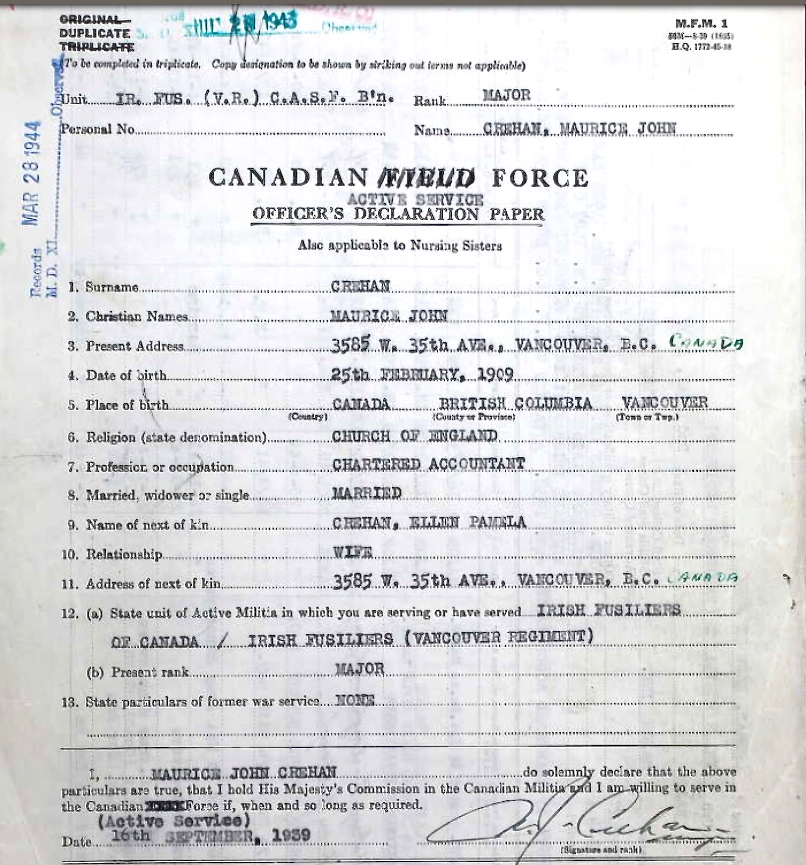 ORIGINAL
DUPLICATE
TRIPLICATE
1943
M.F.M. 1
H.Q. 1772-45-38
(To be completed in triplicate. Copy designation to be shown by striking out terms not applicable)
Unit IR. FUS. (V.R.) C.A.S.F. B'n. Rank MAJOR
Personal No. Name CREHAN, MAURICE JOHN
Records MAR 28 1944
M. D. XI. Observed
CANADIAN FIELD FORCE
ACTIVE SERVICE
OFFICER'S DECLARATION PAPER
Also applicable to Nursing Sisters
1. Surname CREHAN
2. Christian Names MAURICE JOHN
3. Present Address 3585 W. 35th AVE., VANCOUVER, B.C. CANADA
4. Date of birth 25th FEBRUARY, 1909
5. Place of birth CANADA BRITISH COLUMBIA VANCOUVER
(Country) (County or Province) (Town or Twp.)
6. Religion (state denomination) CHURCH OF ENGLAND
7. Profession or occupation CHARTERED ACCOUNTANT
8. Married, widower or single MARRIED
9. Name of next of kin CREHAN, ELLEN PAMELA
10. Relationship WIFE
11. Address of next of kin 3585 W. 35th AVE., VANCOUVER, B.C. CANADA
12. (a) State unit of Active Militia in which you are serving or have served IRISH FUSILIERS
OF CANADA / IRISH FUSILIERS (VANCOUVER REGIMENT)
(b) Present rank MAJOR
13. State particulars of former war service NONE
I, MAURICE JOHN CREHAN do solemnly declare that the above
particulars are true, that I hold His Majesty's Commission in the Canadian Militia and I am willing to serve in
the Canadian Force if, when and so long as required.
(Active Service)
Date 16th SEPTEMBER, 1939
M. J. Crehan
(Signature and rank)